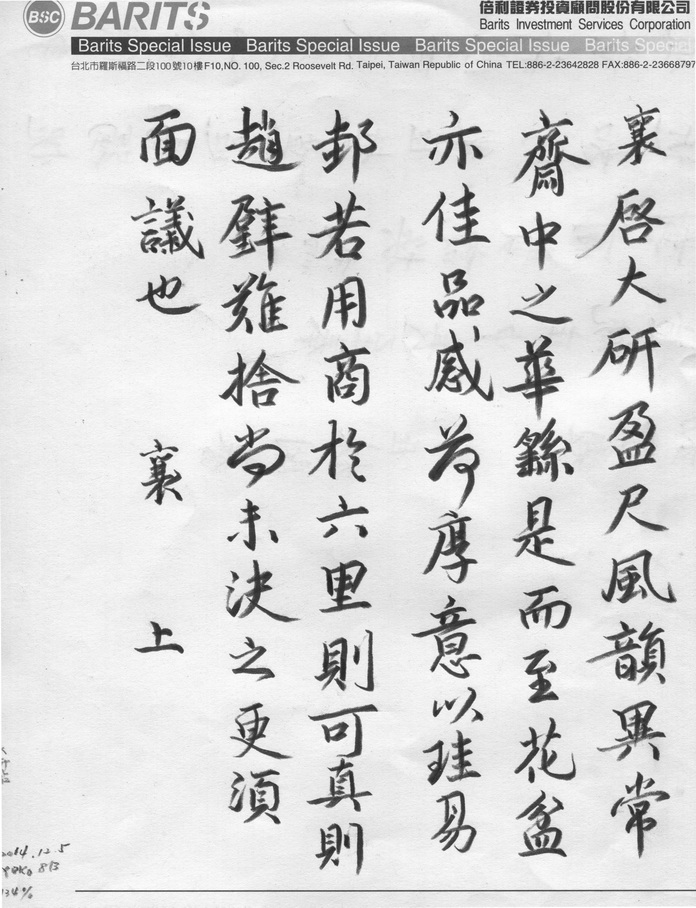 BSC BARITS
倍利證券投資顧問股份有限公司
Barits Investment Services Corporation
Barits Special Issue Barits Special Issue Barits Special Issue Barits Special
台北市羅斯福路二段100號10樓F10,NO. 100, Sec.2 Roosevelt Rd. Taipei, Taiwan Republic of China TEL:886-2-23642828 FAX:886-2-23668797
襄啓大研盈尺風韻異常
齋中之華繇是而至花盆
亦佳品感荷厚意以珪易
邽若用商於六里則可真則
趙璧難捨尚未決之更須
面議也 襄 上
2014.12.5
134%